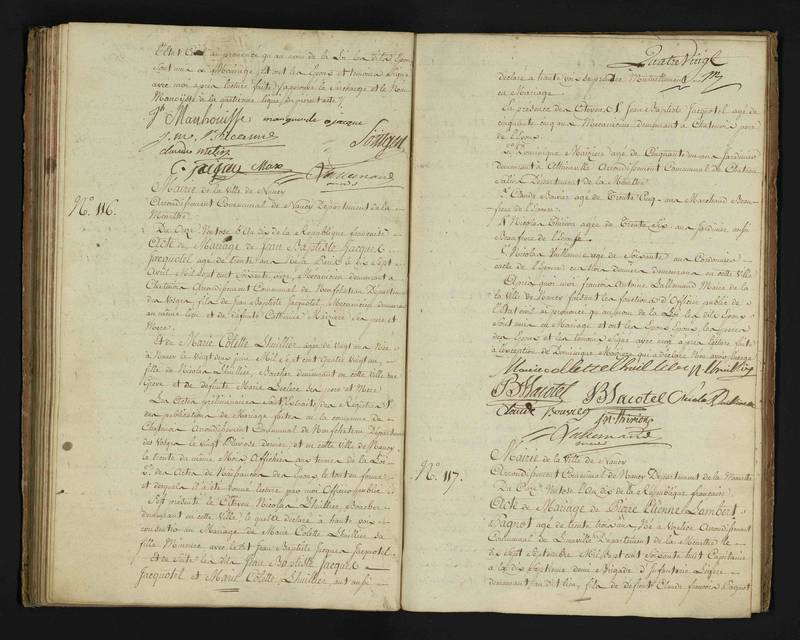 l'Etat Civil ai prononcé qu'au nom de la Loi les dits Epoux
sont unis en Mariage, et ont les Epoux et temoins signé
avec moi après lecture faite
Manhouisse
claudes
C. gaignier Max
Lallemand
maire
Mairie de la Ville de Nancy
Nº. 116.
Arrondissement Communal de Nancy Département de la
Meurthe
Du Onze Ventose l'An dix de la République française
Acte de Mariage de Jean Baptiste Jacques
Jacquotel agé de trente ans Né à Paris le dix Sept
Avril Mil Sept cent Soixante onze, Mécanicien demeurant à
Chatenoi Arrondissement Communal de Neufchateau Département
des Vosges, fils de Jean Baptiste Jacquotel, Mécanicien demeurant
au même lieu et de défunte Catherine Maizière ses pere et
Mere.
Et de Marie Colette Lhuillier agée de vingt un ans Née
à Nancy le Vingt deux Juin Mil Sept cent quatre vingt un,
fille de Nicolas Lhuillier, Boucher demeurant en cette Ville rue
et de défunte Marie Leclerc ses pere et Mere.
Les Actes préliminaires sont Extraits des Registres 1º.
des publications de Mariage faites en la commune de
Chatenoi Arrondissement Communal de Neufchateau Département
des Vosges le vingt Pluviose dernier et en cette ville de Nancy
le trente du même Mois Affichées aux termes de la Loi
2º. des Actes de Naissance des Epoux le tout en forme
et desquels il a été donné lecture par moi Officier public
Est présenté le Citoyen Nicolas Lhuillier, Boucher
demeurant en cette Ville, lequel a déclaré à haute voix
consentir au Mariage de Marie Colette Lhuillier sa
fille Mineure avec le dit Jean Baptiste Jacques Jacquotel
Et de suite les dits Jean Baptiste Jacques
Jacquotel et Marie Colette Lhuillier, ont aussi
Quatre Vingt
déclaré à haute voix se prendre Mutuellement
en Mariage
En présence des Citoyens 1º Jean Baptiste Jacquotel agé de
cinquante cinq ans Mécanicien demeurant à Chatenoi pere
de l'Epoux.
2º. Dominique Maizière agé de Cinquante un ans Jardinier
demeurant à Arrondissement Communal de Chateau
Salin Département de la Meurthe
3º. Claude Bouvier agé de Trente Cinq ans Marchand Beau-
frere de l'Epouse.
4º Nicolas Thirion agé de Trente Six ans Jardinier aussi
Beaufrere de l'Epouse
Nicolas Vuillemin agé de Soixante ans Cordonnier
oncle de l'Epouse, ces trois derniers demeurans en cette Ville
Après quoi moi françois Antoine Lallemand Maire de la
la Ville de Nancy faisant les fonctions d'Officier public de
l'Etat civil ai prononcé qu'au nom de la Loi les dits Epoux
sont unis en Mariage et ont les Epoux, les peres
des Epoux et les temoins signé avec moi après lecture faite
à l'exception de Dominique Maizière qui a déclaré n'en avoir l'usage
Marie colette lhuillier N lhuillier
JB Jacotel JB Jacotel Nicolas Vuillemin
Claude Bouvier
N thirion
Lallemand
maire
Mairie de la Ville de Nancy
Nº. 117.
Arrondissement Communal de Nancy Département de la Meurthe
Du Onze Ventose l'An dix de la République française
Acte de Mariage de Pierre Etienne Lambert
Pagnot agé de trente trois ans, Né à Vezelise Arrondissement
Communal de Lunéville Département de la Meurthe le
dix Sept Septembre Mil Sept cent soixante huit Capitaine
à la dix Septieme demi Brigade d'Infanterie Légère
demeurant au dit lieu, fils de défunt Claude françois Pagnot